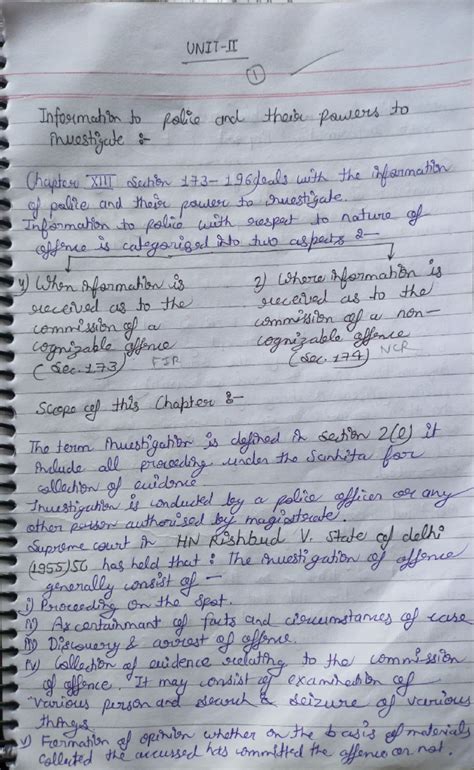 UNIT-II
1
Information to police and their powers to
Investigate :-
Chapter XIII section 173-196 deals with the information
of police and their power to Investigate.
Information to police with respect to nature of
offence is categorized into two aspects :-
1) When information is
received as to the
commission of a
cognizable offence
(Sec. 173) FIR
2) Where information is
received as to the
commission of a non-
cognizable offence
(Sec. 174) NCR
Scope of this Chapter :-
The term Investigation is defined in section 2(l) it
include all proceeding under the Sanhita for
collection of evidence
Investigation is conducted by a police officer or any
other person authorised by magistrate.
Supreme court in HN Rishbud V. State of delhi
(1955)SC has held that : The investigation of offence
generally consist of -
i) Proceeding on the spot.
ii) Ascertainment of facts and circumstances of case
iii) Discovery & arrest of offence.
iv) Collection of evidence relating to the commission
of offence. It may consist of examination of
various person and search & seizure of various
things
v) Formation of opinion whether on the basis of materials
collected the accussed has committed the offence or not.